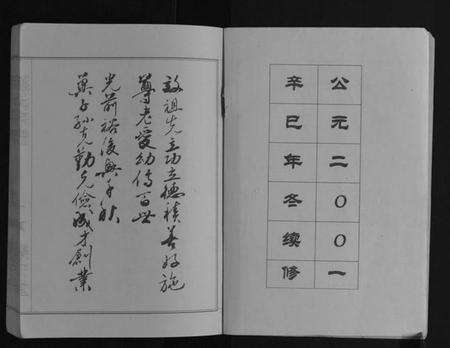 公元二〇〇一
辛巳年冬续修
效祖先立功立德積善好施
尊老愛幼傳百世
光前裕後興千秋
萬子孫克勤克儉成才創業